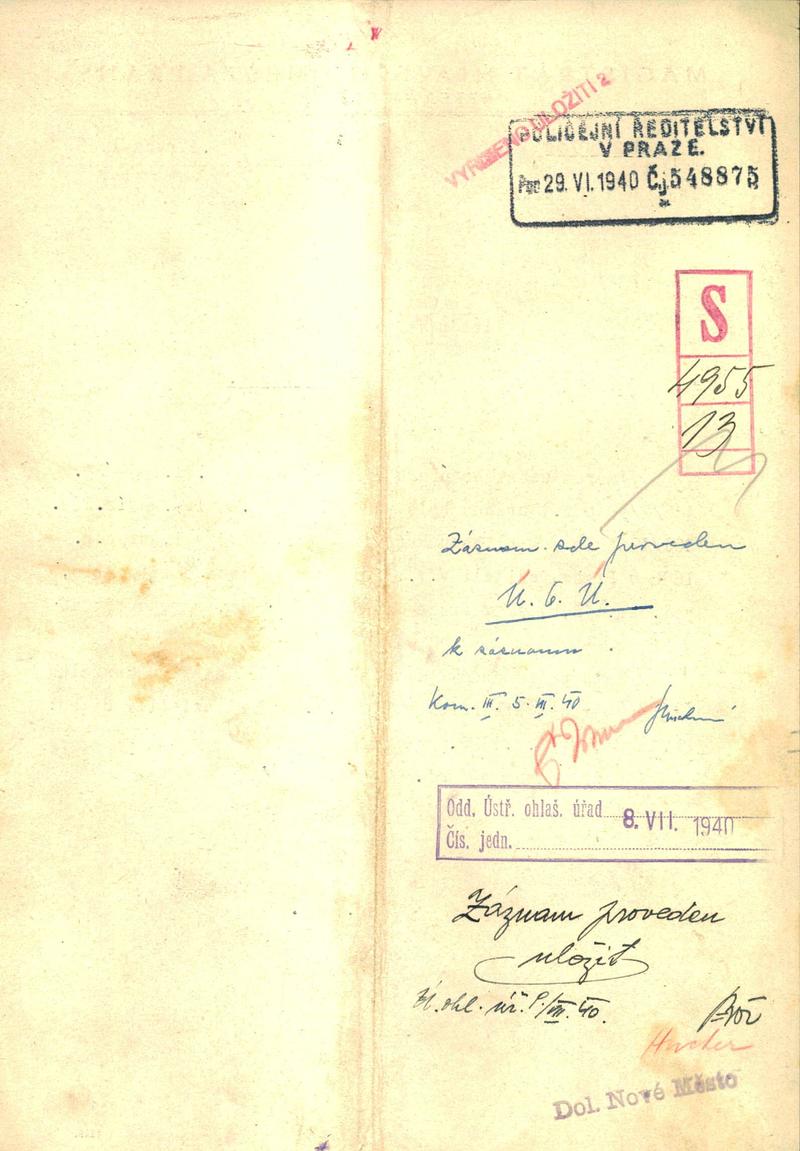 VYŘÍZENO ULOŽITI 2
POLICEJNÍ ŘEDITELSTVÍ
V PRAZE.
29. VI. 1940 Čj 548875
S
4955
13
Záznam zde proveden
Ú. O. Ú.
k záznamu
Kom. III. 5. VII. 40
Odd. Ústř. ohlaš. úřad 8. VII. 1940
Čís. jedn.
Záznam proveden
uložit
ohl. úř. /VII. 40.
Dol. Nové Město